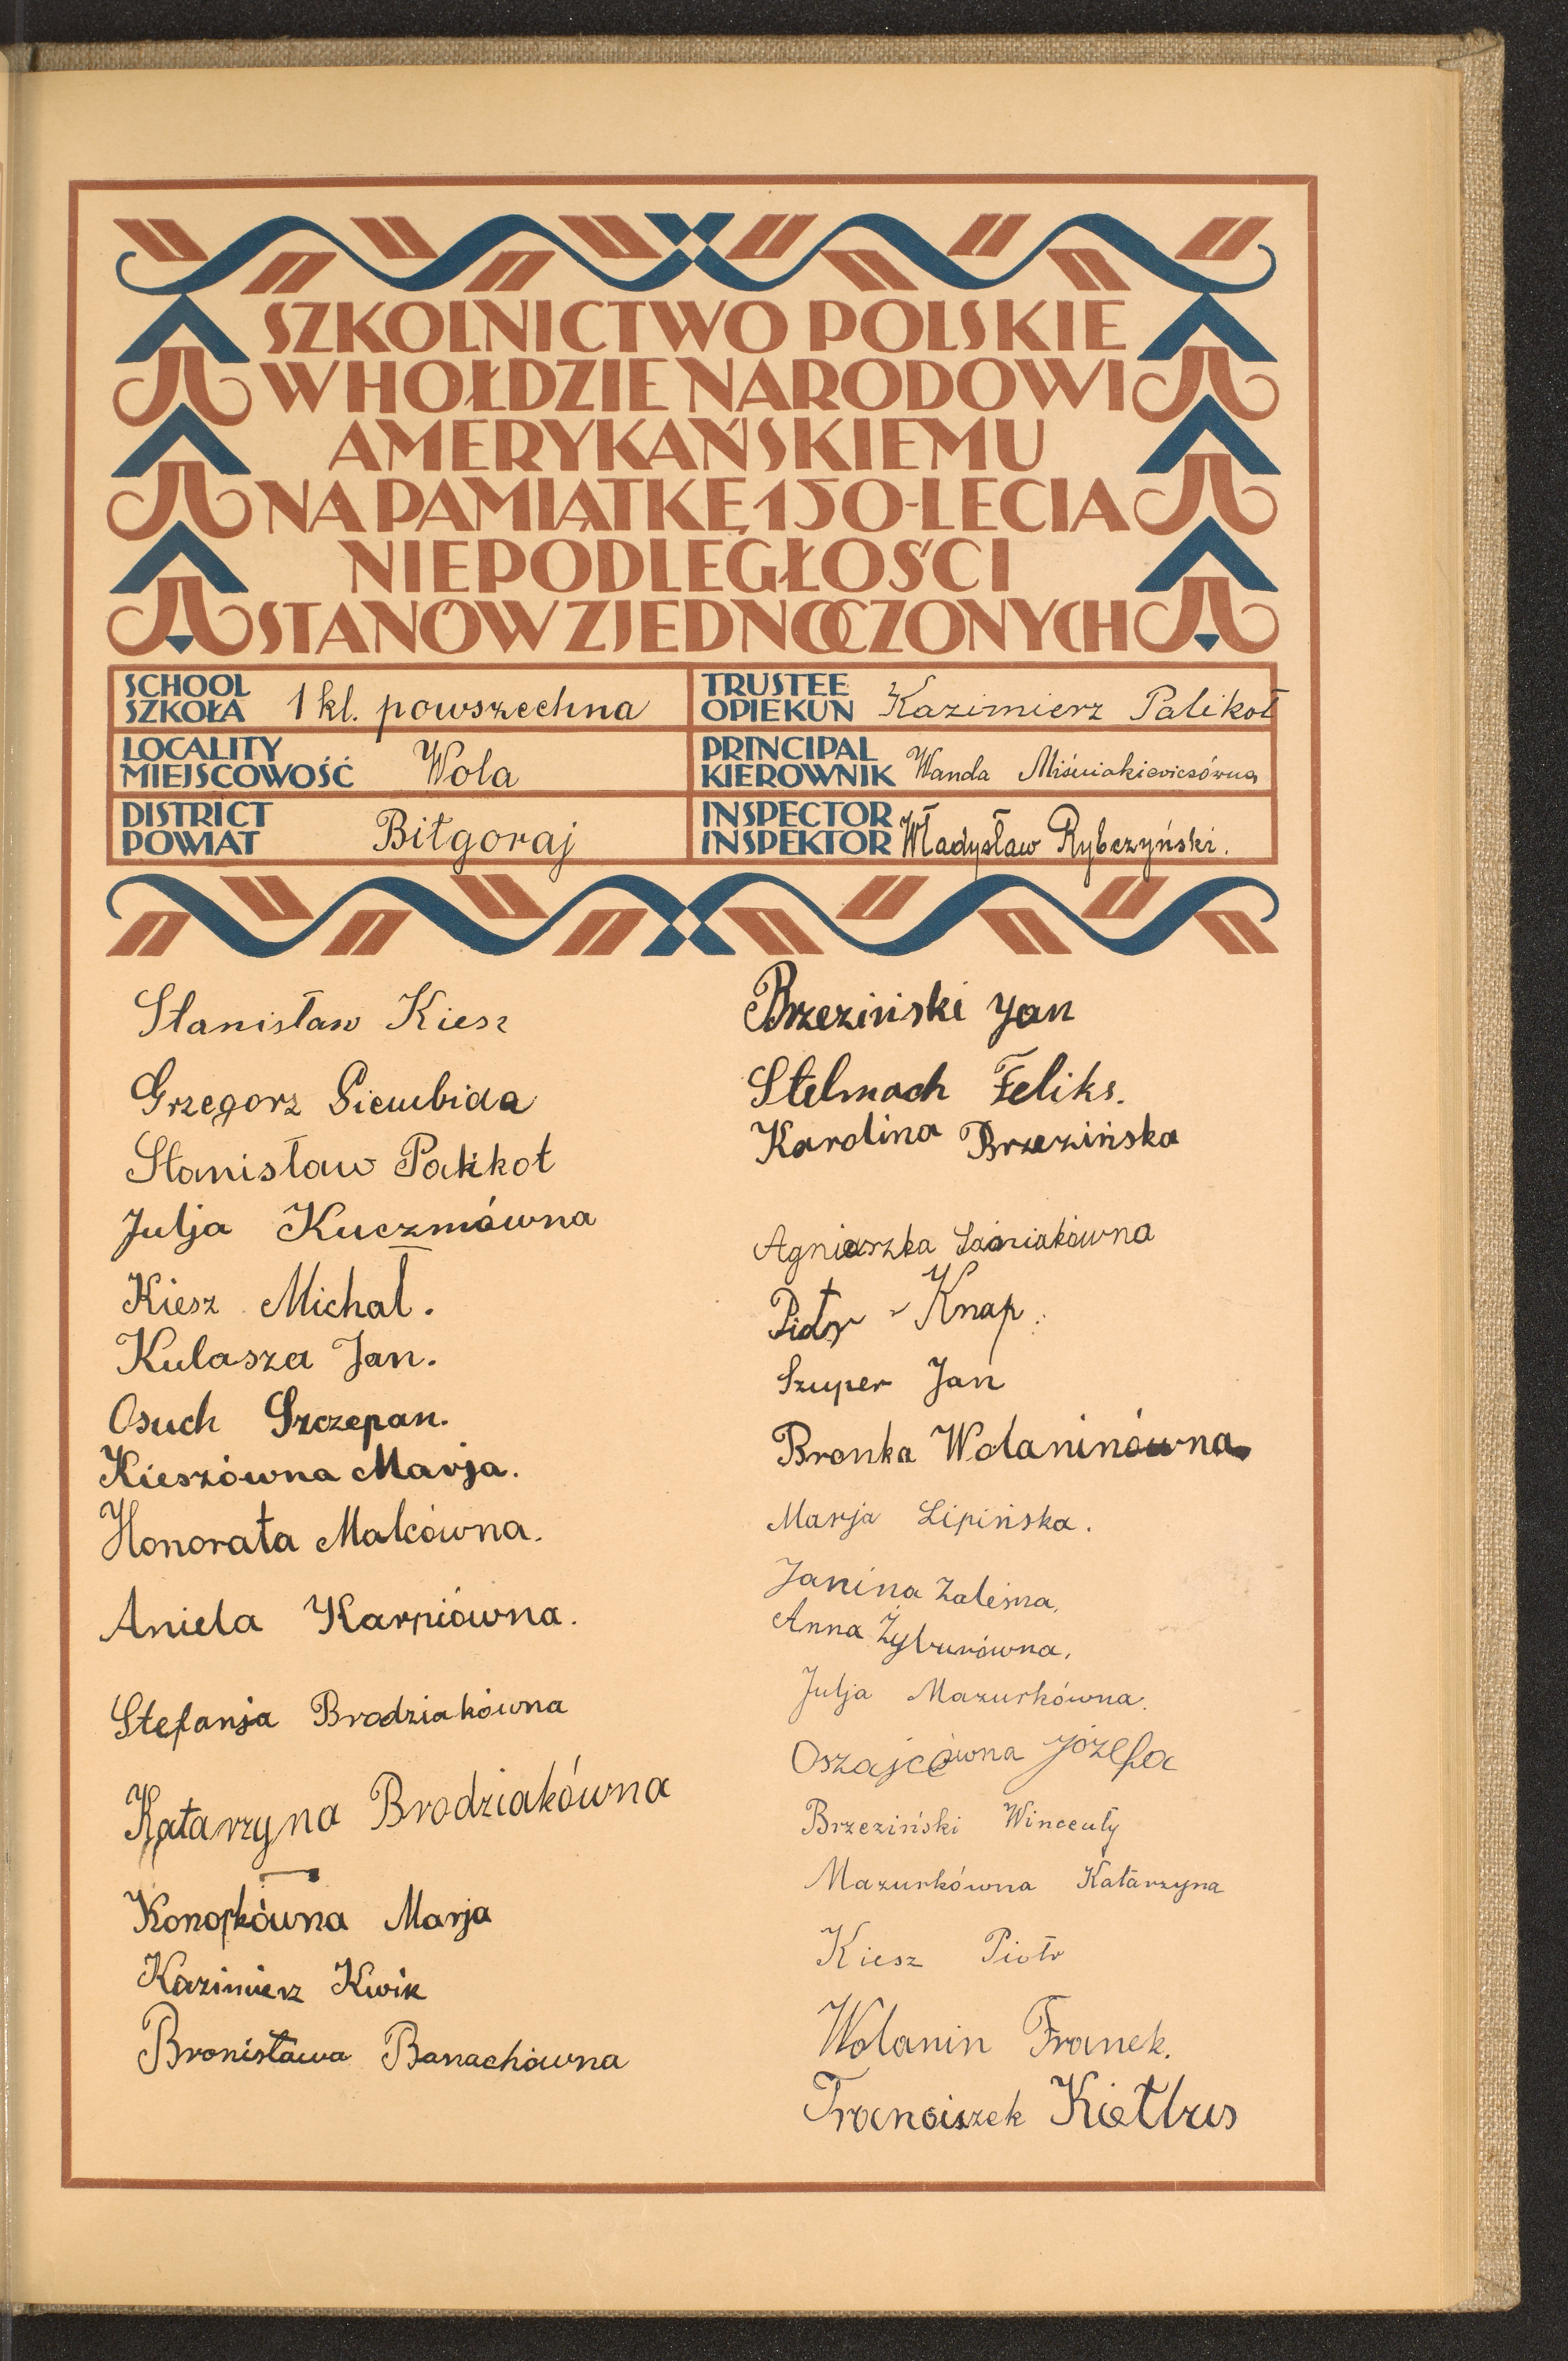 SZKOLNICTWO POLSKIE
W HOŁDZIE NARODOWI
AMERYKAŃSKIEMU
NA PAMIĄTKĘ 150-LECIA
NIEPODLEGŁOŚCI
STANÓW ZJEDNOCZONYCH
SCHOOL
SZKOŁA 1 kl. powszechna
TRUSTEE
OPIEKUN Kazimierz Palikot
LOCALITY
MIEJSCOWOŚĆ Wola
PRINCIPAL
KIEROWNIK Wanda Miśniakiewiczówna
DISTRICT
POWIAT Biłgoraj
INSPECTOR
INSPEKTOR Władysław Rybczyński.
Stanisław Kiesz
Grzegorz Siembida
Stanisław Palikot
Julja Kuczmówna
Kiesz Michał.
Kulasza Jan.
Osuch Szczepan.
Kieszówna Marja.
Honorata Malcówna.
Aniela Karpiówna.
Stefanja Brodziakówna
Katarzyna Brodziakówna
Konopkówna Marja
Kazimierz Kwik
Bronisława Banachówna
Brzeziński Jan
Stelmach Feliks.
Karolina Brzezińska
Agnieszka
Piotr Knap.
Szuper Jan
Bronka Wolaninówna
Marja Lipińska.
Janina Zaleśna.
Anna Żyburówna.
Julja Mazurkówna.
Oszajcówna Józefa
Brzeziński Wincenty
Mazurkówna Katarzyna
Kiesz Piotr
Wolanin Franek.
Franciszek Kiełbus